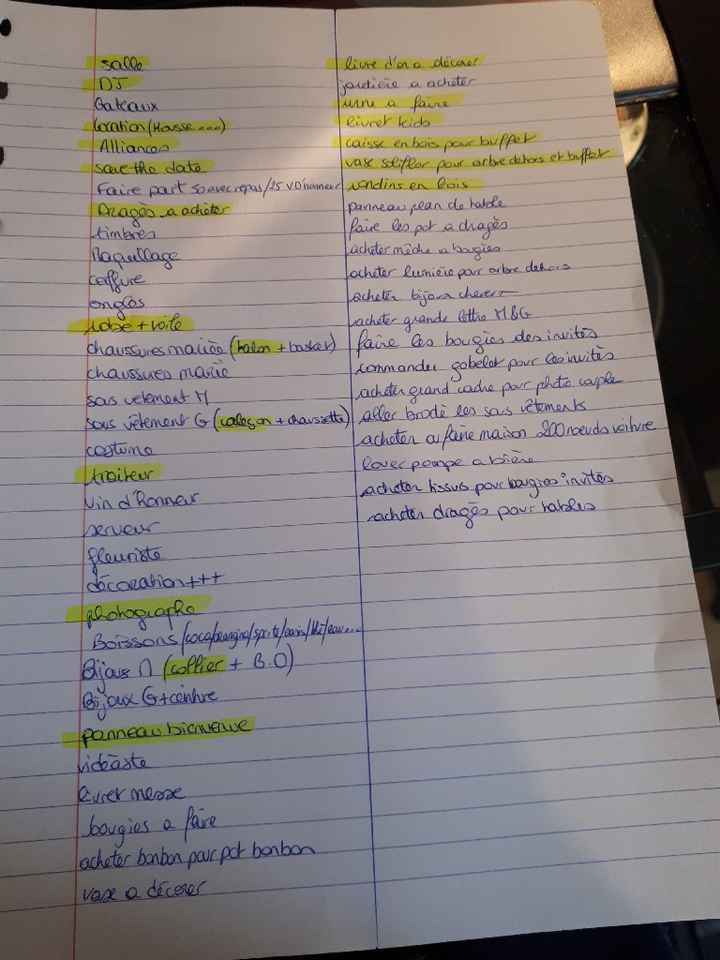 salle
DJ
Gateaux
location (Housse ...)
Alliances
save the date
Faire part 50 avec repas/25 VD'honneur
Dragés a acheter
timbres
Maquillage
coiffure
ongles
robe + voile
chaussures mariée (talon + basket)
chaussures marié
sous vetement M
sous vêtement G (caleçon + chaussette)
costume
traiteur
Vin d'Honneur
serveur
fleuriste
décoration +++
photographe
Boissons /coca/orangina/sprite/oasis/thé/eau...
Bijoux M (collier + B.O)
Bijoux G + ceinture
panneau bienvenue
vidéaste
livret messe
bougies a faire
acheter bonbon pour pot bonbon
vase a décorer
livre d'or a décorer
jardiniére a acheter
urne a faire
livret kids
caisse en bois pour buffet
vase soliflor pour arbre dehors et buffet
rondins en bois
panneau plan de table
faire les pot a dragés
acheter mèche a bougies
acheter lumiere pour arbre dehors
acheter bijoux cheveux
acheter grande lettre M&G
faire les bougies des invités
commander gobelet pour les invités
acheter grand cadre pour photo couple
aller brodé les sous vêtements
acheter ou faire maison 200 noeuds voiture
louer pompe a bière
acheter tissus pour bougies invités
acheter dragés pour tables